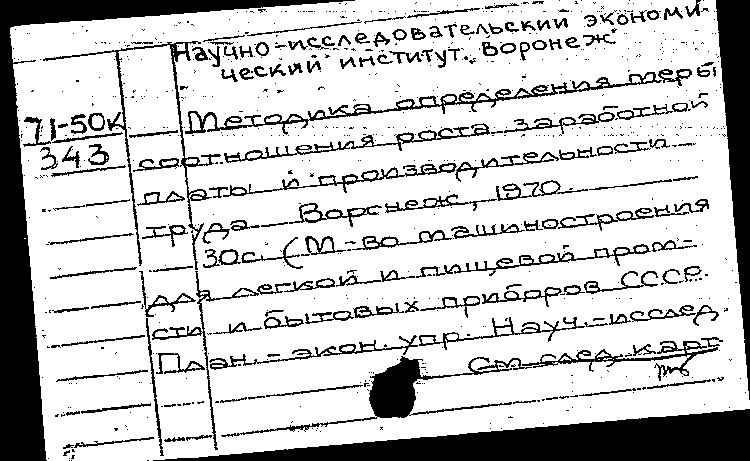 Научно-исследовательский экономи-
ческий институт. Воронеж.
71-50К
343
Методика определения меры
соотношения роста заработной
платы и производительности
труда Воронеж, 1970.
30с. (М-во машиностроения
для легкой и пищевой пром-
сти и бытовых приборов СССР.
План.-экон. упр. Науч.-исслед.
См след. карт